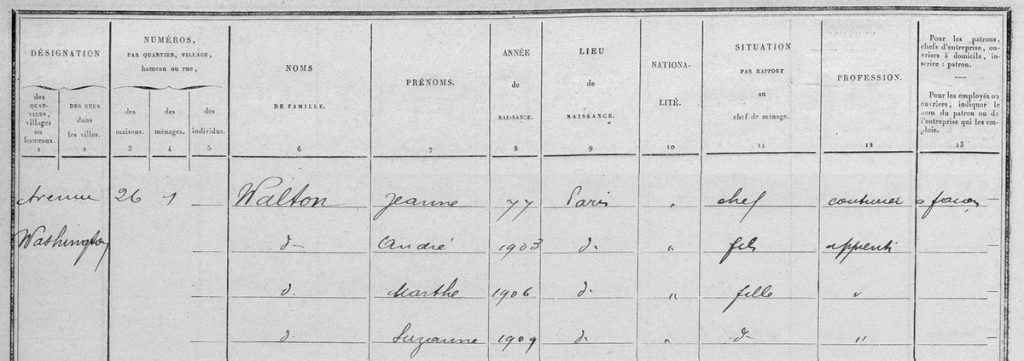 DÉSIGNATION
NUMÉROS,
PAR QUARTIER, VILLAGE,
hameau ou rue,
NOMS
DE FAMILLE.
PRÉNOMS.
ANNÉE
de
NAISSANCE.
LIEU
de
NAISSANCE.
NATIONA-
LITÉ.
SITUATION
PAR RAPPORT
au
chef de ménage.
PROFESSION.
Pour les patrons,
chefs d'entreprise, ou-
vriers à domicile, in-
scrire : patron.
Pour les employés ou
ouvriers, indiquer le
nom du patron ou de
l'entreprise qui les em-
ploie.
des
QUAR-
TIERS,
villages
ou
hameaux.
DES RUES
dans
les villes.
des
maisons.
des
ménages.
des
individus.
1 2 3 4 5 6 7 8 9 10 11 12 13
Avenue 26 1 Walton Jeanne 77 Paris " chef à façon
Washington d° André 1903 d° " fils apprenti
d° Marthe 1906 d° " fille "
d° Suzanne 1909 d° " d° "